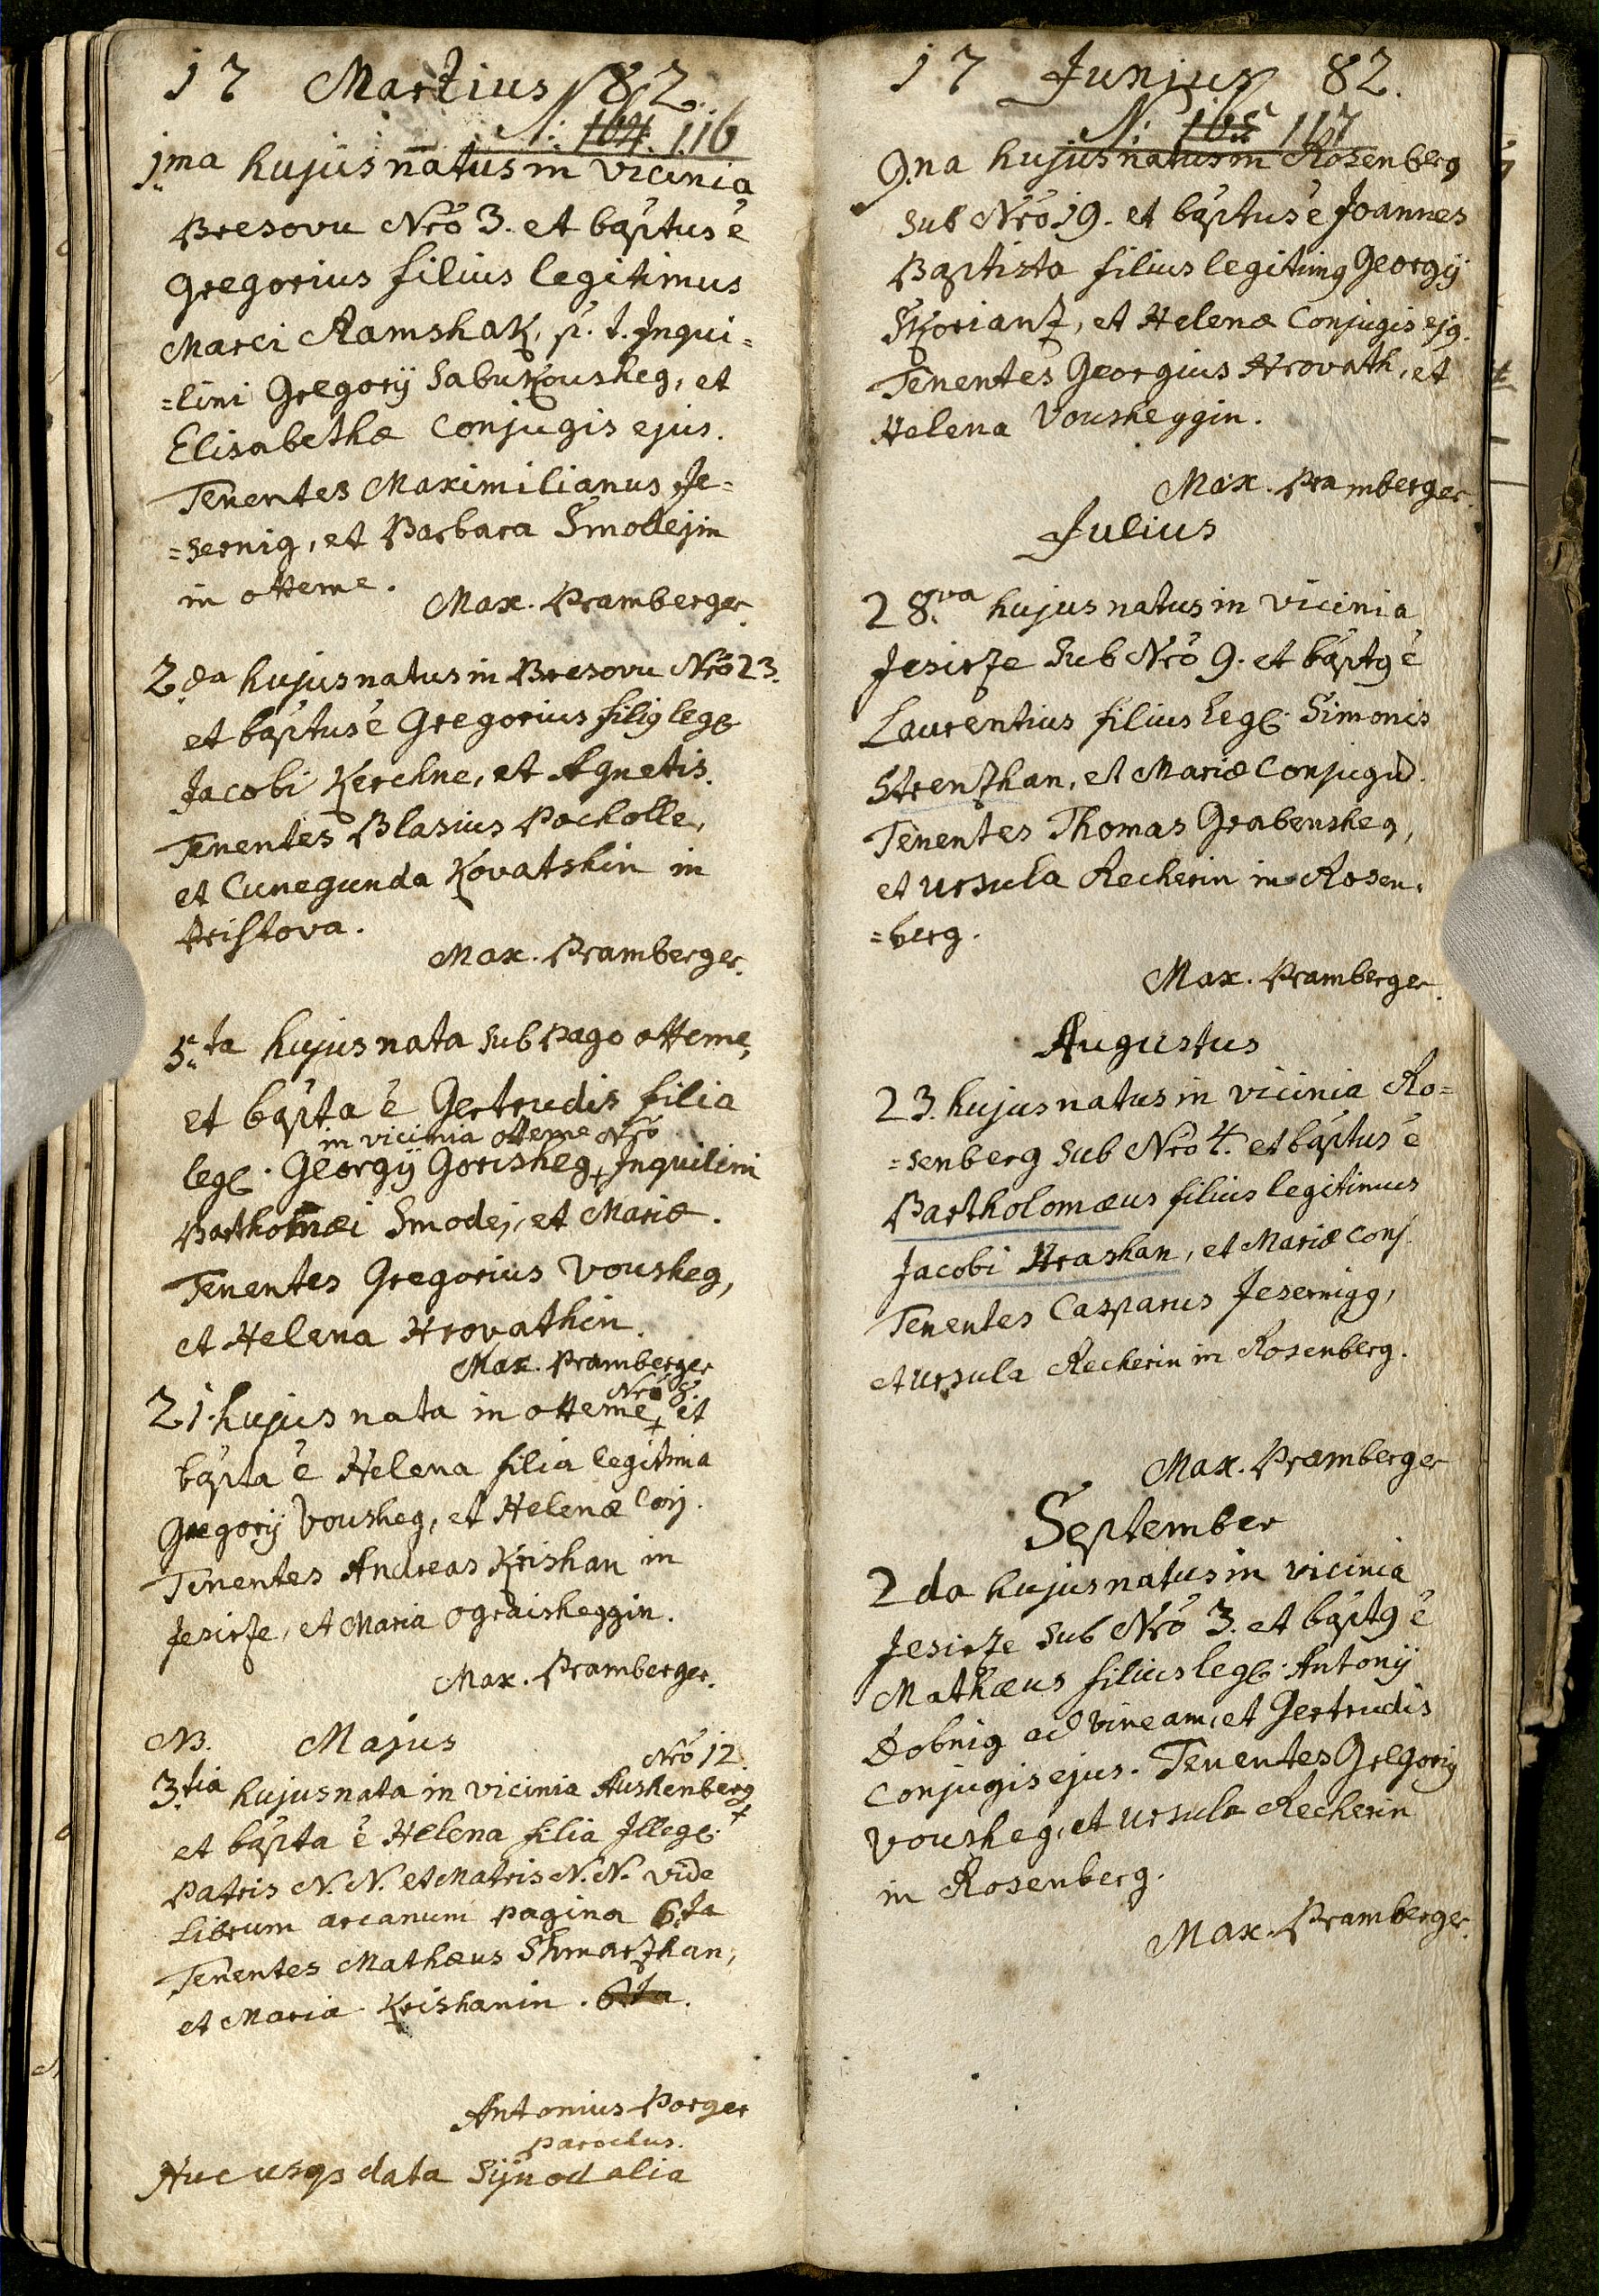 17 Martius 82.
N: 104. 116
1.ma hujus natus in vicinia
Bresovu Nrō 3. et baptus ē
Gregorius filius legitimus
Marci Ramshak, p. t. Inqui=
=lini Gregorij Sabukousheg, et
Elisabethæ Conjugis ejus.
Tenentes Maximilianus Je=
=sernig, et Barbara Smodejin
in otteme.
Max. Pramberger.
2.da hujus natus in Bresovu Nrō 23.
et baptus ē Gregorius filig leg.
Jacobi Kerchne, et Agnetis.
Tenentes Blasius Pocholle,
et Cunegunda Kovatshin in
Max. Pramberger.
5.ta hujus nata sub Pago otteme,
et bapta ē Gertrudis filia
in vicinia otteme Nrō
leg. Georgij Gorisheg, Inquilini
Bartholmæi Smodej, et Mariæ.
Tenentes Gregorius Vousheg,
et Helena Hrovathin.
Max. Pramberger
Nrō 8.
21. hujus nata in otteme, et
bapta ē Helena filia legitima
Gregorij Vousheg, et Helenæ Conj.
Tenentes Andreas Krishan in
Jesirze, et Maria Ograisheggin.
Max. Pramberger.
NB. Majus
Nrō 12.
3.tia hujus nata in vicinia Aushenberg
et bapta ē Helena filia Illeg. +
Patris N. N. et Matris N. N. vide
Librum arcanum pagina 6.ta
Tenentes Mathæus Shmarzhan,
et Maria Krishanin. 6ta.
Antonius Porger
Parochus.
Huc usqs data Sÿnodalia
17 Junius 82.
N: 105 117
9.na hujus natus in Rosenberg
sub Nrō 19. et baptus ē Joannes
Baptista filius legitimg Georgij
Skorianz, et Helenæ Conjugis ejg.
Tenentes Georgius Hrovath, et
Helena Vousheggin.
Max. Pramberger.
Julius
28.va hujus natus in vicinia
Jesirze sub Nrō 9. et baptg ē
Laurentius filius leg. Simonis
Strenzhan, et Mariæ Conjugū.
Tenentes Thomas Grabensheg,
et Ursula Recherin in Rosen=
=berg.
Max. Pramberger.
Augustus
23. hujus natus in vicinia Ro=
=senberg sub Nrō 4. et baptus ē
Bartholomæus filius legitimus
Jacobi Hrashan, et Mariæ Conj.
Tenentes Casparus Jesernigg,
et Ursula Recherin in Rosenberg.
Max. Pramberger
September
2da hujus natus in vicinia
Jesirze sub Nrō 3. et baptg ē
Mathæus filius leg. Antonij
Dobnig ad vineam, et Gertrudis
Conjugis ejus. Tenentes Gregorig
Vousheg, et Ursula Recherin
in Rosenberg.
Max. Pramberger.